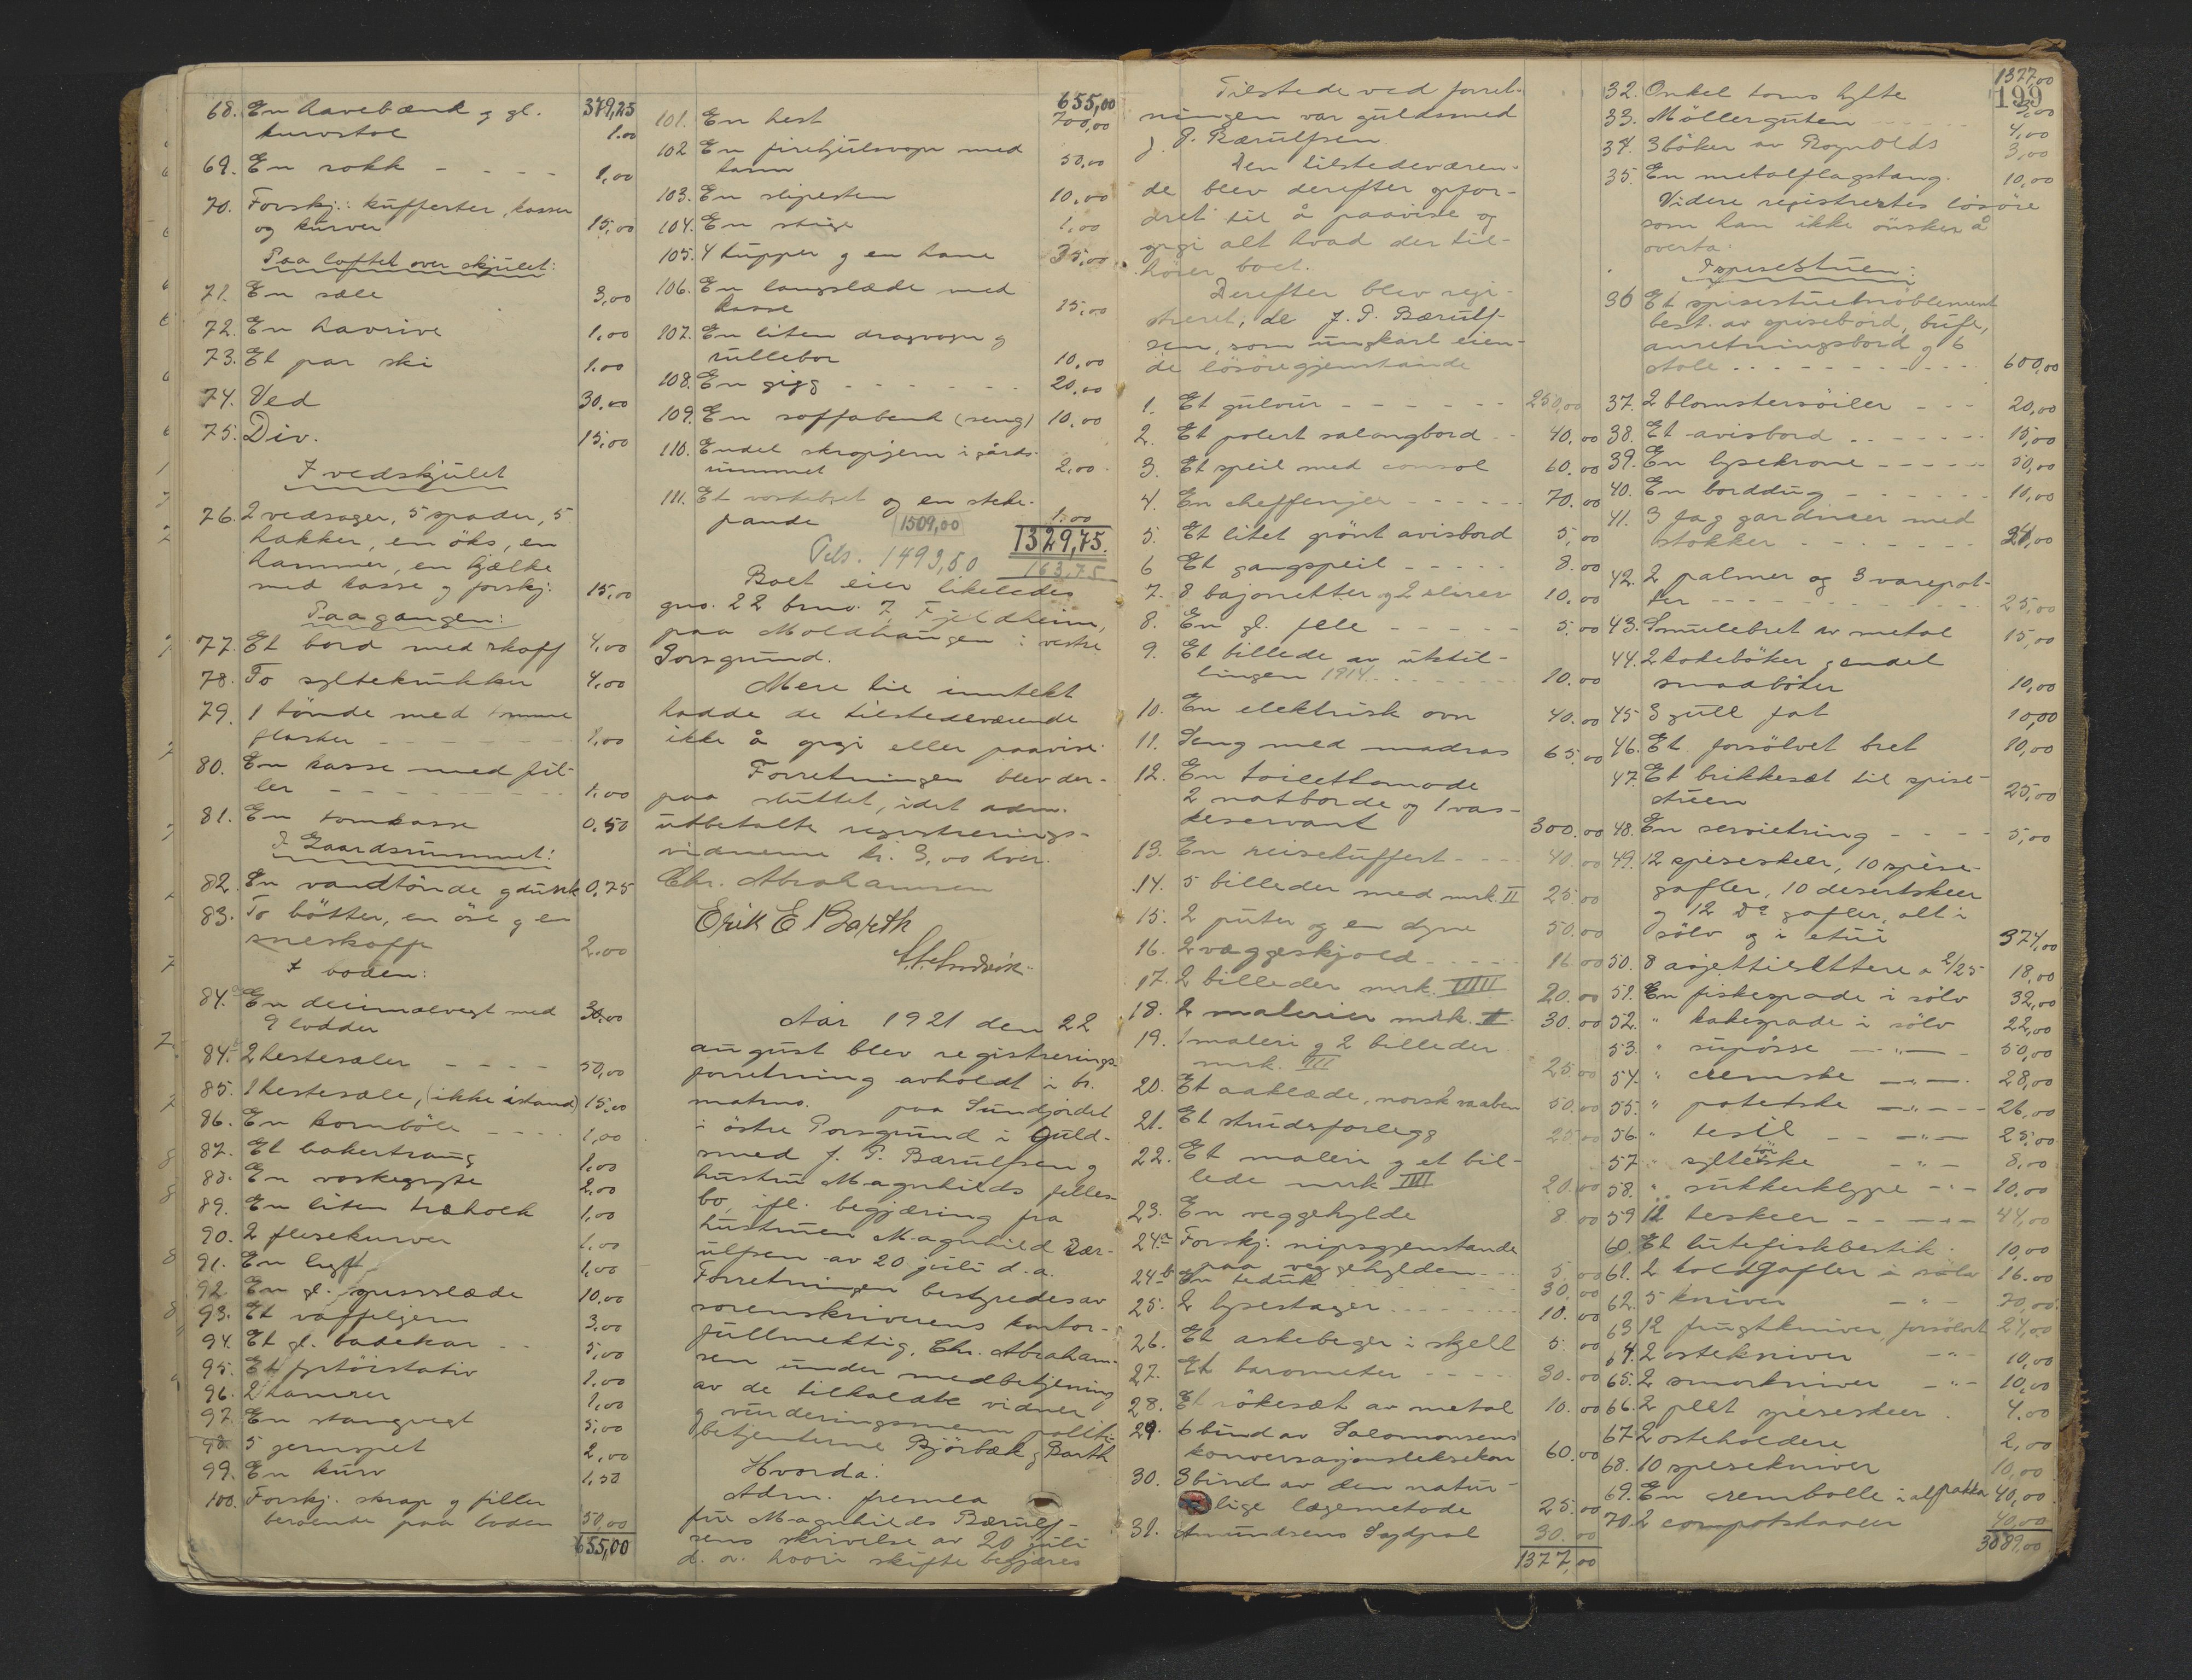 379,25
68. En havebænk og gl.
kurvstol 1.00
69. En rokk - - - - 1,00
70. Forskj: kufferter, kasser
og kurver 15,00
Paa loftet over skjulet:
71. En sele 3,00
72. En havrive 1,00
73. Et par ski 1.00
74. Ved 30,00
75. Div. 15,00
I vedskjulet
76. 2 vedsager, 5 spader, 5
hakker, en øks, en
hammer, en kjælke
med kasse og forskj: 15,00
Paa gangen:
77. Et bord med skaff 4,00
78. To syltekrukker 4,00
79. 1 tönde med tomme
flasker - - - - 1,00
80. En kasse med fil-
ler - - - - 1,00
81. En tomkasse 0,50
I Gaardsrummet:
82. En vandtönde og dunk 0,75
83. To bötter, en öse og en
sneskoffe 2,00
I boden:
84.a En decimalvegt med
9 lodder 30,00
84.b 2 hestesæler - - - - 50,00
85. 1 hestesæle, (ikke istand) 15,00
86. En kornböle - - - - 1,00
87. Et bakertraug 1,00
88. En vaskegryte 2,00
89. En liten træholk 1,00
90. 2 flisekurver 1,00
91. En lygt 1,00
92. En gl. spisslæde 10,00
93. Et vaffeljern 3,00
94. Et gl. badekar - - 5,00
95. Et fyrtöistativ 1,00
96. 2 hamrer 1,00
97. En stangvegt 5,00
98. 5 jernspet 2,00
99. En kurv 1,50
100. Forskj. skrap og filler
beroende paa boden 50,00
655,00
655,00
101. En hest 700,00
102 En firehjulsvogn med
karm 50,00
103. En slipesten 10,00
104. En stige 1,00
105. 4 hupper og en hane 35,00
106. En langslæde med
kasse 15,00
107. En liten dragvogn og
rullebor 10,00
108. En gigg - - - - 20,00
109. En soffabenk (seng) 10,00
110. Endel skrapjern i gårds-
rummet 2,00
111. Et vostebret og en steke-
pande 1509,00 1.00
1329,75.
Tils. 1493,50 163,75
Boet eier likeledes
gno. 22 bruno. 7, Fjeldheim,
paa Moldhaugen i vestre
Porsgrund.
Mere til inntekt
hadde de tilstedeværende
ikke å opgi eller paavise.
Forretningen blev der-
paa sluttet, idet adm.
utbetalte registrerings-
vidnerne kr. 3,00 hver.
Chr. Abrahamsen
Erik E Barth
Aar 1921 den 22
august blev registrerings-
forretning avholdt i br.
matrno. paa Sundjordet
i östre Porsgrund i Guld-
smed J. P. Bærulfsen og
hustru Magnhilds felles-
bo, ifl. begjæring fra
hustruen Magnhild Bær-
ulfsen av 20 juli d.a.
Forretningen bestyredes av
sorenskriverens kontor-
fullmektig, Chr. Abraham-
sen under medbetjening
av de tilkaldte vidner
og vurderingsmenn politi-
betjenterne Björbæk og Barth
Hvorda:
Adm. fremla
fru Magnhilds Bærulf-
sens skrivelse av 20 juli
d.a. hvori skifte begjæres
Tilstede ved forret-
ningen var guldsmed
J. P. Bærulfsen.
Den tilstedeværen-
de blev derefter opfor-
dret til å paavise og
opgi alt hvad der til-
hörer boet.
Derefter blev regi-
streret, de J. P. Bærulf-
sen, som ungkarl eien-
de lösöregjenstande
1. Et gulvur - - - - 250,00
2. Et polert salongbord - - 40.00
3. Et speil med consol 60.00
4. En cheffenjer - - - - 70.00
5. Et litet grönt avisbord 5,00
6 Et gangspeil - - - - 8.00
7. 8 bajonetter og 2 slirer 10.00
8. En gl. fele - - - - 5.00
9. Et billede av utstil-
lingen 1914 - - - - 10.00
10. En elektrisk ovn 40.00
11. Seng med madras 65.00
12. En toiletkomode
2 natborde og 1 vas-
keservant 300.00
13. En reisekuffert - - - 40.00
14. 5 billeder med mrk. II 25.00
15. 2 puter og en dyne 50.00
16. 2 væggeskjold - - - - 16.00
17. 2 billeder mrk. IIIII 20.00
18. 2 malerier mrk. II 30.00
19. 1 maleri og 2 billeder
mrk. III 25.00
20. Et aaklæde, norsk vaaben 50.00
21. Et strudsforlegg 25.00
22. Et maleri og et bil-
lede mrk IIII 20.00
23. En veggehylde 8.00
24a Forskj. nipsgjenstande
paa veggehylden - - - 5.00
24b En teduk - - - - 30.00
25. 2 lysestager - - - - 10.00
26. Et askebeger i skjell 5.00
27. Et barometer - - - - 30.00
28. Et rökesæt av metal 10.00
29. 6 bind av Salomonsens
konversasjonsleksekon 60.00
30. 3 bind av den natur-
lige lægemetode 25.00
31. Amundsens Sydpol 30.00
1377,00
1377,00
199
32. Onkel toms hytte 3,00
33. Möllerguten 4,00
34. 3 böker av Rognolds 3,00
35. En metalflagstang. 10,00
Videre registrertes lösöre
som han ikke önsker å
overta:
I spisestuen:
36 Et spisestuemöblement
best. av spisebord, bufe,
anretningsbord og 6
stole - - - - 600,00
37. 2 blomstersöiler - - - 20,00
38. Et avisbord - - - - 15,00
39. En lysekrone - - - - 50,00
40. En borddug - - - - 10,00
41. 3 fag gardiner med
stokker - - - - 24,00
42. 2 palmer og 3 varepot-
ter - - - - 25,00
43. Smulebret av metal 15,00
44. 2 kokeböker og endel
smaaböker 10,00
45 3 gull fat 10,00
46. Et forsölvet bret 10,00
47. Et brikkesæt til spise-
stuen 25,00
48. En servietring - - - - 5,00
49. 12 spiseskeer, 10 spise-
gafler, 10 desertskeer
og 12 Do gafler, alt i
sölv og i etui 374,00
50. 8 asjettilsettere a 2/25 18,00
51. En fiskespade i sölv 32,00
52. " kakespade i sölv 22,00
53. " supösse — " — 50,00
54. " cremske — " — 28,00
55. " potetske — " — 26,00
56. " tesil — " — 25,00
57 " syltetöiske — " — 8,00
58. " sukkerklype — " — 10,00
59 12 teskeer - - — " — 44,00
60. Et lutefiskbestik. 10,00
61. 2 koldgafler i sölv 16.00
62. 5 kniver — " — 70,00
63 12 frugtkniver, forsölvet 24,00
64. 2 ostekniver — " — 10,00
65. 2 smörkniver — " — 10,00
66. 2 plet spiseskeer. 4.00
67. 2 osteholdere 2,00
68. 10 spisekniver 10,00
69. En crembolle i alpakka 40,00
70. 2 compotskaaler 40,00
3089,00